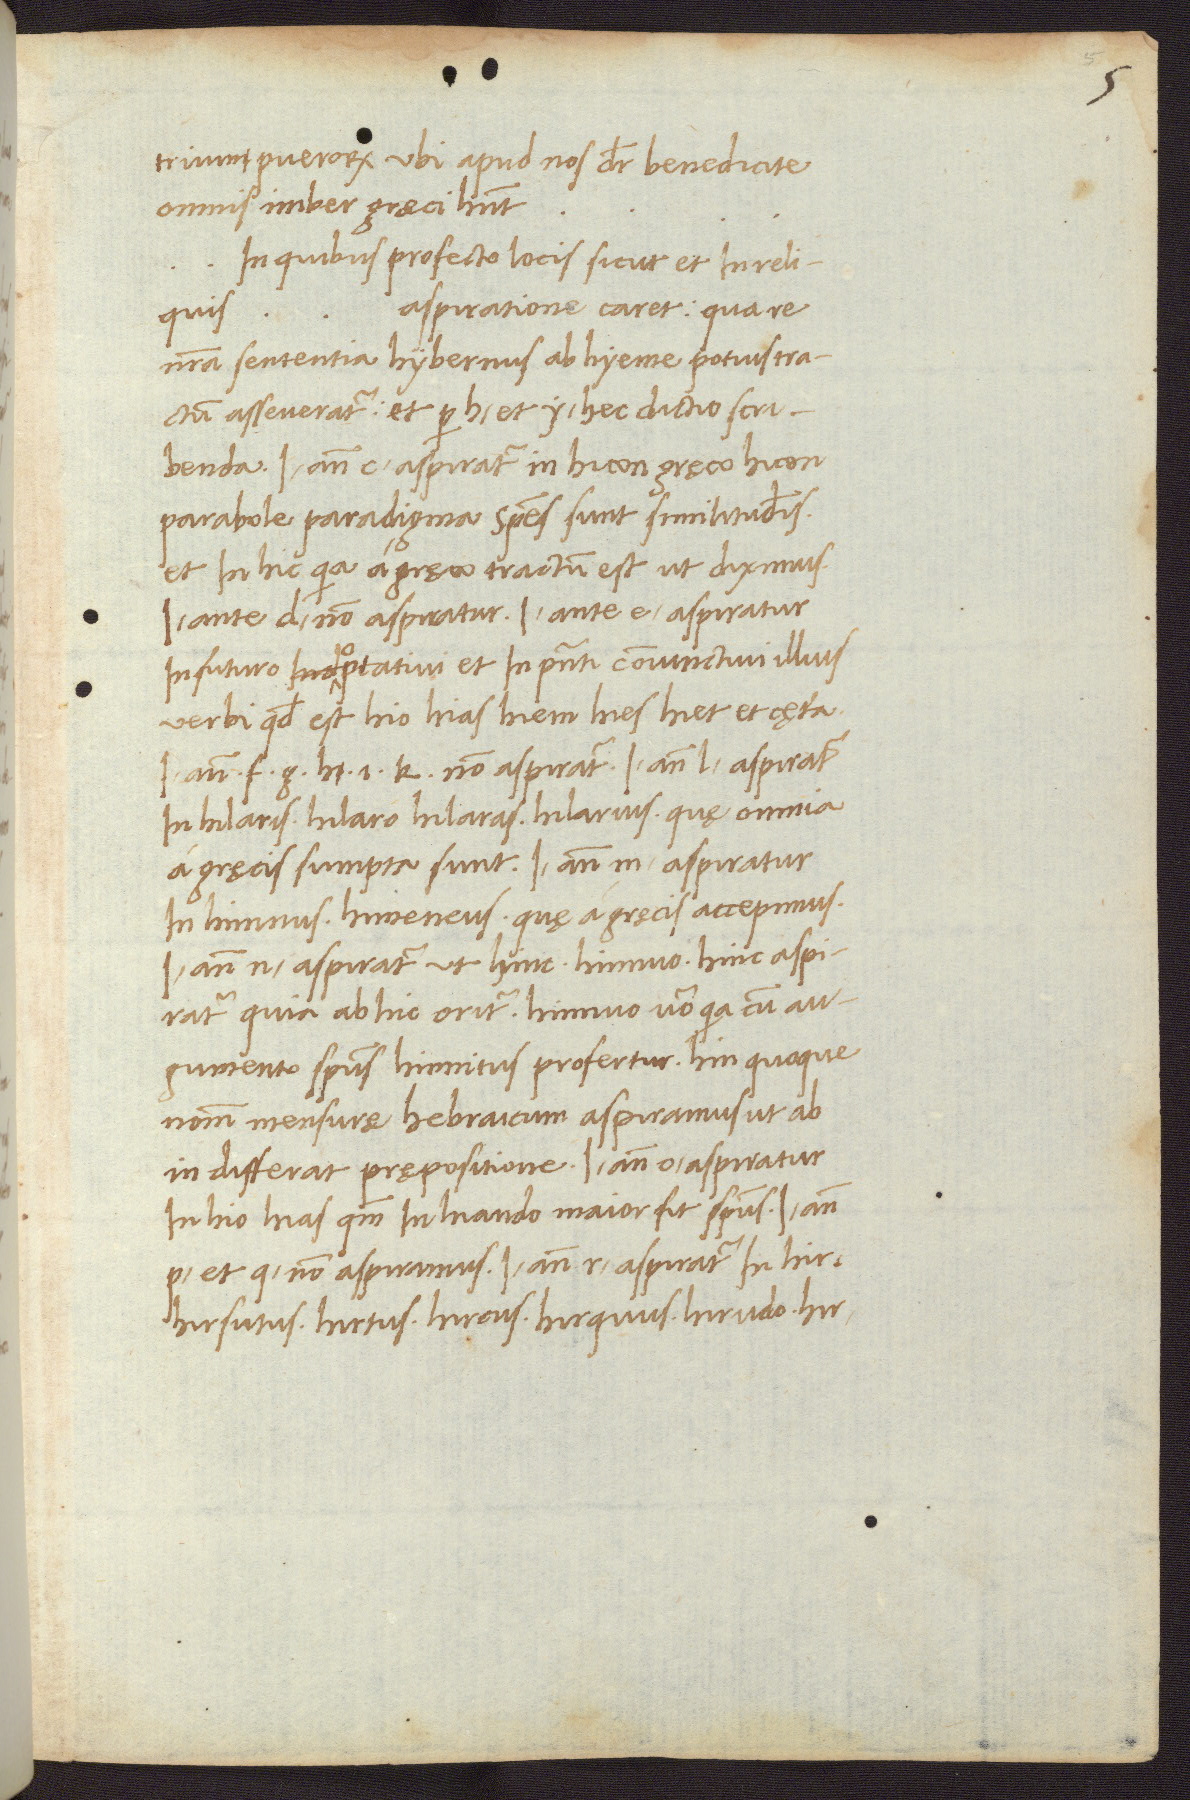 5
5
triumpuerorꝝ ubi apud nos dr̄ benedicite
omnis imber gręci hn̄t . . . .
. . In quibus profecto locis sicut et In reli-
quis . . aspiratione caret: quare
nr̄a sententia hÿbernus ab hÿeme potius tra-
ctū asseverat᷑: et ꝑ h, et ẏ, hec dictio scri-
benda. I, an̄ c, aspirat᷑ in hicon gręco hicon
parabole paradigma sp̄es sunt similitud̄is.
et In hic qa á gręco tractū est ut diximus.
I, ante d, nō aspiratur. I, ante e, aspiratur
In futuro Indoptativi et In pn̄ti cōiunctivi illius
verbi qd̄ est hio hias hiem hies hiet et cęt̄a.
I, an̄. f. g. h. i. k. nō aspirat᷑. I, an̄ l, aspirat᷑
In hilaris. hilaro hilaras. hilarius. quę omnia
á gręcis sumpta sunt. I, an̄ m, aspiratur
In himnus. himeneus. quę á gręcis accepimus.
I, an̄ n, aspirat᷑ ut hinc. hinnuo. hinc aspi-
rat᷑ quia ab hic orit᷑. hinnuo ūo qa cū au-
gumento sp̄us hinnitus profertur. hin quoque
nom̄ mensurę hebraicum aspiramus ut ab
in differat prępositione. I, an̄ o, aspiratur
In hio hias qm̄ In hiando maior fit sp̄us. I, an̄
p, et q, nō aspiramus. I, an̄ r, aspirat᷑ In hir.
hirsutus. hirtus. hircus. hirquus. hirudo. hir,